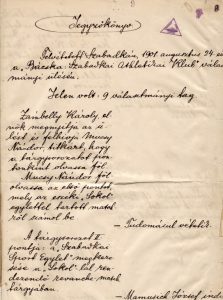 Jegyzőkönyv
Felvétetett Szabadkán, 1901 augusztus 24 én
a „Bácska Szabadkai Athletikai Klub" választ-
mányi ülésén.
Jelen volt: 9 választmányi tag
Zámbelly Károly el-
nök megnyitja az ü-
lést és felhívja Mucsy
Nándor titkárt, hogy
a tárgysorozatot pon-
tonkint olvassa föl
Mucsy Nándor föl
olvassa az első pontot,
mely az eszéki „Sokol"
egylettel tartott match-
ről számol be
— Tudomásul vétetik.
A tárgysorozat II
pontja: a „Szabadkai
Sport Egylet" megkere-
sése a „Sokol"-lal ren-
dezendő revanche match
tárgyában
— Mamusich József